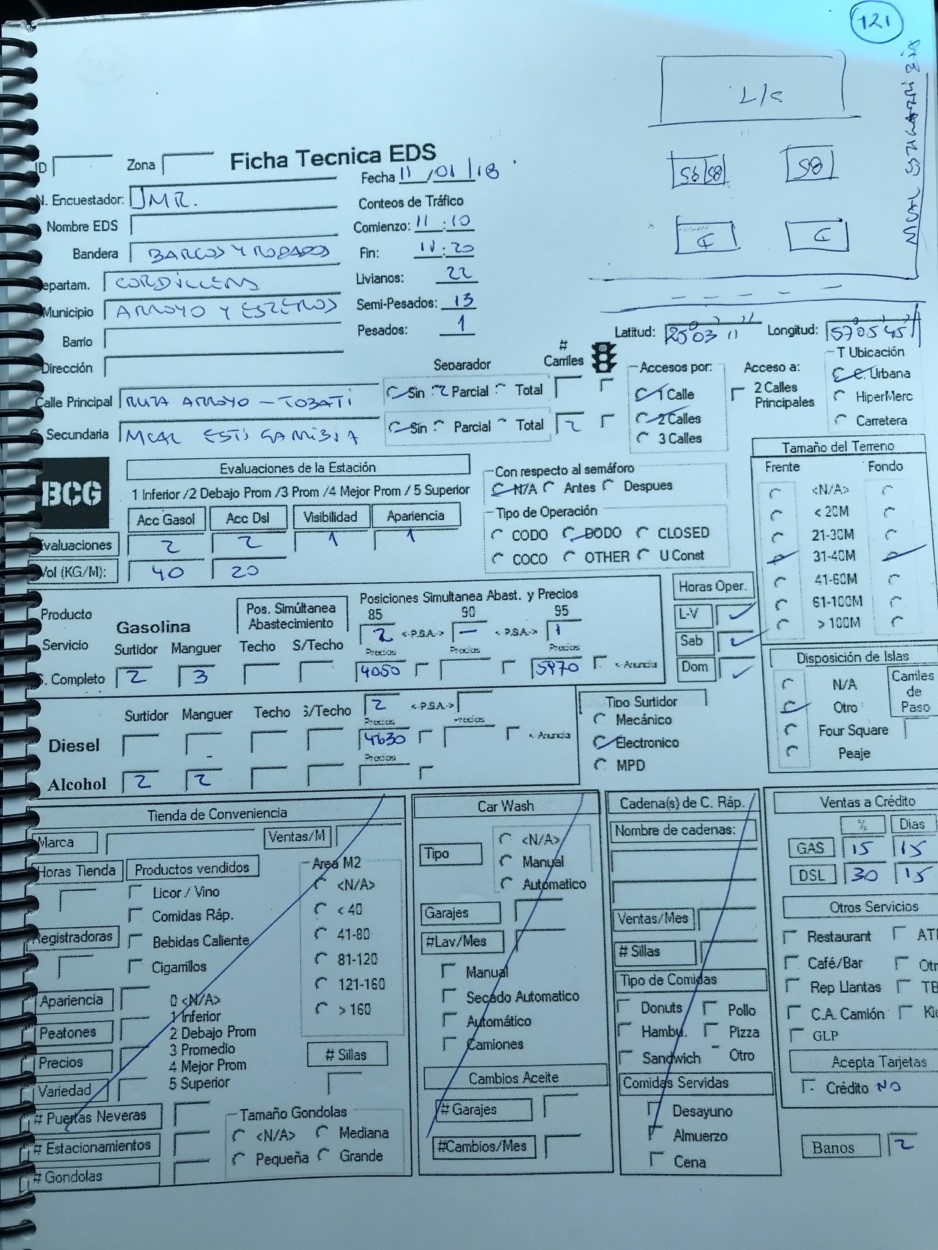 121
L/S
85/95
85
D
D
ID Zona Ficha Tecnica EDS
Fecha 11/01/18
N. Encuestador: JMR.
Conteos de Tráfico
Nombre EDS
Comienzo: 11:10
Bandera BARCOS Y RODADOS
Fin: 11:20
epartam. CORDILLERA
Livianos: 22
Municipio ARROYO Y ESTEROS
Semi-Pesados: 13
Barrio
Pesados: 1
Latitud: 250311 Longitud: 570545
Dirección
Separador # Carriles
Accesos por: Acceso a: T Ubicación
Calle Principal RUTA ARROYO - TOBATI
Sin Parcial Total
1 Calle 2 Calles Principales C. Urbana
2 Calles HiperMerc
3 Calles Carretera
Secundaria MCAL ESTIGARRIBIA
Sin Parcial Total 2
BCG
Evaluaciones de la Estación
1 Inferior /2 Debajo Prom /3 Prom /4 Mejor Prom /5 Superior
Acc Gasol Acc Dsl Visibilidad Apariencia
Evaluaciones 2 2 1 1
Vol (KG/M): 40 20
Con respecto al semáforo
N/A Antes Despues
Tipo de Operación
CODO DODO CLOSED
COCO OTHER U Const
Tamaño del Terreno
Frente Fondo
<N/A>
< 20M
21-30M
31-40M
41-60M
61-100M
> 100M
Producto
Servicio
Gasolina
Pos. Simúltanea Abastecimiento
Posiciones Simultanea Abast. y Precios
85 90 95
Surtidor Manguer Techo S/Techo
2 <-P.S.A.-> - <-P.S.A.-> 1
Precios Precios Precios
S. Completo 2 3
4050 5970 <- Anuncia
Horas Oper.
L-V
Sab
Dom
Disposición de Islas
N/A
Otro
Four Square
Peaje
Carriles de Paso
Surtidor Manguer Techo S/Techo
2 <-P.S.A.->
Precios Precios
Diesel 4630 <- Anuncia
Precios
Alcohol 2 2
Tipo Surtidor
Mecánico
Electronico
MPD
Tienda de Conveniencia
Marca Ventas/M
Horas Tienda Productos vendidos Area M2
Licor / Vino <N/A>
Comidas Ráp. < 40
Registradoras Bebidas Caliente 41-80
Cigarrillos 81-120
121-160
> 160
Apariencia 0 <N/A>
1 Inferior
Peatones 2 Debajo Prom
3 Promedio
Precios 4 Mejor Prom
5 Superior
Variedad
# Sillas
# Puertas Neveras
# Estacionamientos
# Gondolas
Tamaño Gondolas
<N/A> Mediana
Pequeña Grande
Car Wash
Tipo <N/A>
Manual
Automatico
Garajes
#Lav/Mes
Manual
Secado Automatico
Automático
Camiones
Cambios Aceite
# Garajes
#Cambios/Mes
Cadena(s) de C. Ráp.
Nombre de cadenas:
Ventas/Mes
# Sillas
Tipo de Comidas
Donuts Pollo
Hambu. Pizza
Sandwich Otro
Comidas Servidas
Desayuno
Almuerzo
Cena
Ventas a Crédito
% Dias
GAS 15 15
DSL 30 15
Otros Servicios
Restaurant
Café/Bar
Rep Llantas
C.A. Camión
GLP
Acepta Tarjetas
Crédito NO
Banos 2